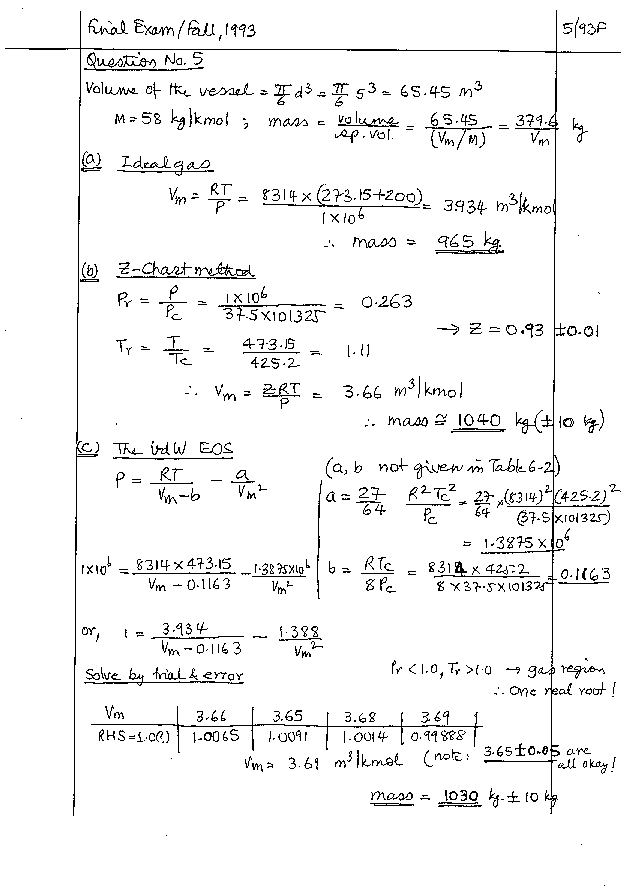 Final Exam/Fall, 1993 5/93F
Question No. 5
Volume of the vessel = π/6 d³ = π/6 5³ = 65.45 m³
M = 58 kg/kmol ; mass = volume/sp. vol. = 65.45/(Vm/M) = 379.6/Vm kg
(a) Ideal gas
Vm = RT/P = 8314 × (273.15+200)/1×10⁶ = 3.934 m³/kmol
∴ mass = 965 kg.
(b) Z-Chart method
Pr = P/Pc = 1×10⁶/37.5×101325 = 0.263
→ Z = 0.93 ±0.01
Tr = T/Tc = 473.15/425.2 = 1.11
∴ Vm = ZRT/P = 3.66 m³/kmol
∴ mass ≅ 1040 kg (±10 kg)
(c) The vdW EOS (a, b not given in Table 6-2)
P = RT/Vm-b - a/Vm²
a = 27/64 R²Tc²/Pc = 27/64 × (8314)²(425.2)²/(37.5×101325)
= 1.3875×10⁶
1×10⁶ = 8314×473.15/Vm - 0.1163 - 1.3875×10⁶/Vm²
b = RTc/8Pc = 8314 × 425.2/8×37.5×101325 = 0.1163
or, 1 = 3.934/Vm-0.1163 - 1.388/Vm²
Pr < 1.0, Tr > 1.0 → gas region
Solve by trial & error ∴ One real root!
Vm 3.66 3.65 3.68 3.69
(RHS=1.0?) 1.0065 1.0091 1.0014 0.99888
Vm = 3.69 m³/kmol (note: 3.65±0.05 are all okay!
mass = 1030 kg. ± 10 kg